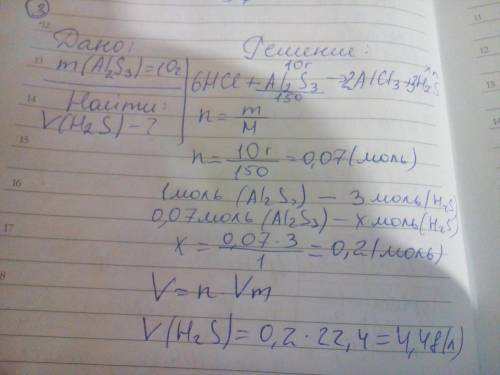 3
Дано:
m(Al₂S₃)=10г
Найти:
V(H₂S)-?
Решение:
10г xл
6HCl + Al₂S₃ → 2AlCl₃ + 3H₂S
150
n = m/M
n = 10г/150 = 0,07(моль)
1 моль (Al₂S₃) — 3 моль (H₂S)
0,07 моль (Al₂S₃) — x моль (H₂S)
x = 0,07·3/1 = 0,2(моль)
V = n Vm
V(H₂S) = 0,2·22,4 = 4,48(л)
12
13
14
15
16
17
8
11
12
13
14
15